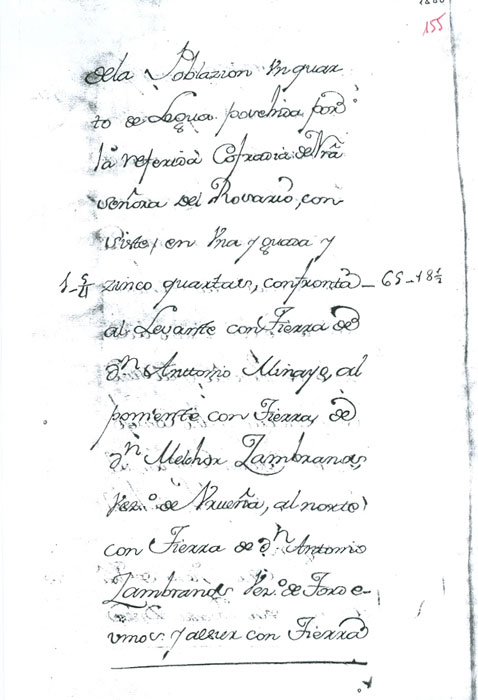 155
dela Poblazion Vn quar
to de Legua. povehida por
la referida Cofradia de Nra̅
señora del Rosario, con
siste, en Vna yguada y
1-5/4 zinco quartas, confronta - 65-18½
al Levante con Tierra de
dn Anttonio Minayo, al
poniente con Tierra, de
dn Melchor Zambranos,
Vez.º de Vrueña, al norte
con Tierra de dn Antonio
Zambranos Vez.º de Toro e-
y al sur con Tierra